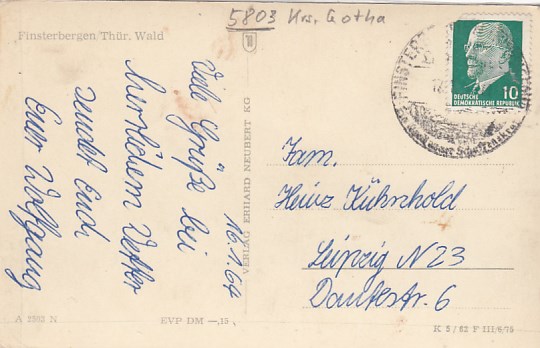 5803 Krs. Gotha
Finsterbergen/Thür. Wald
Viele Grüße bei
herrlichem Wetter
sendet Euch
Euer Wolfgang
16.1.64
VERLAG ERHARD NEUBERT KG
FINSTERB
10
DEUTSCHE
DEMOKRATISCHE REPUBLIK
Fam.
Heinz Kühnhold
Leipzig N23
Dantestr. 6
A 2562 N
EVP DM —,15
K 5/62 F III/6/75